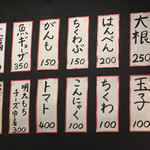 大根
250
はんぺん
200
ちくわぶ
150
がんも
150
魚ギョーザ
350
玉子
100
ちくわ
100
こんにゃく
100
トマト
400
明太もち
チーズ巾着
300